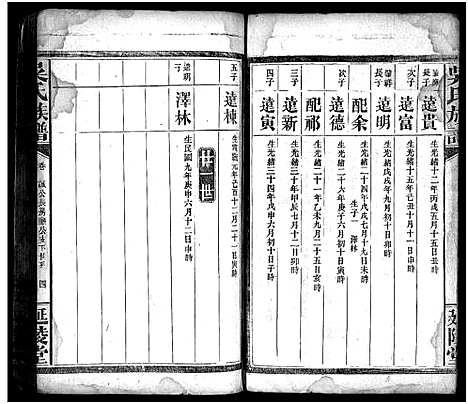 吳氏族譜
延陵堂
遠貴
生光緒十二年丙戌五月二十一日
長子
遠富
生光緒十五年己丑十月十一日子時
長子
遠明
生光緒戊戌年九月初十日寅時
配余
生光緒二十四年戊戌七月十九日未時
生子一 澤林
次子
遠德
生光緒二十六年庚子六月初十日寅時
配祁
生光緒二十一年乙未九月二十五日亥時
三子
遠新
生光緒三十年甲辰八月二十日卯時
四子
遠寅
生光緒三十四年戊申六月初十日子時
五子
遠棟
生宣統元年己酉十二月二十一日戌時
遠明子
澤林
生民國九年庚申六月十二日申時
吳氏族譜
卷
四
延陵堂